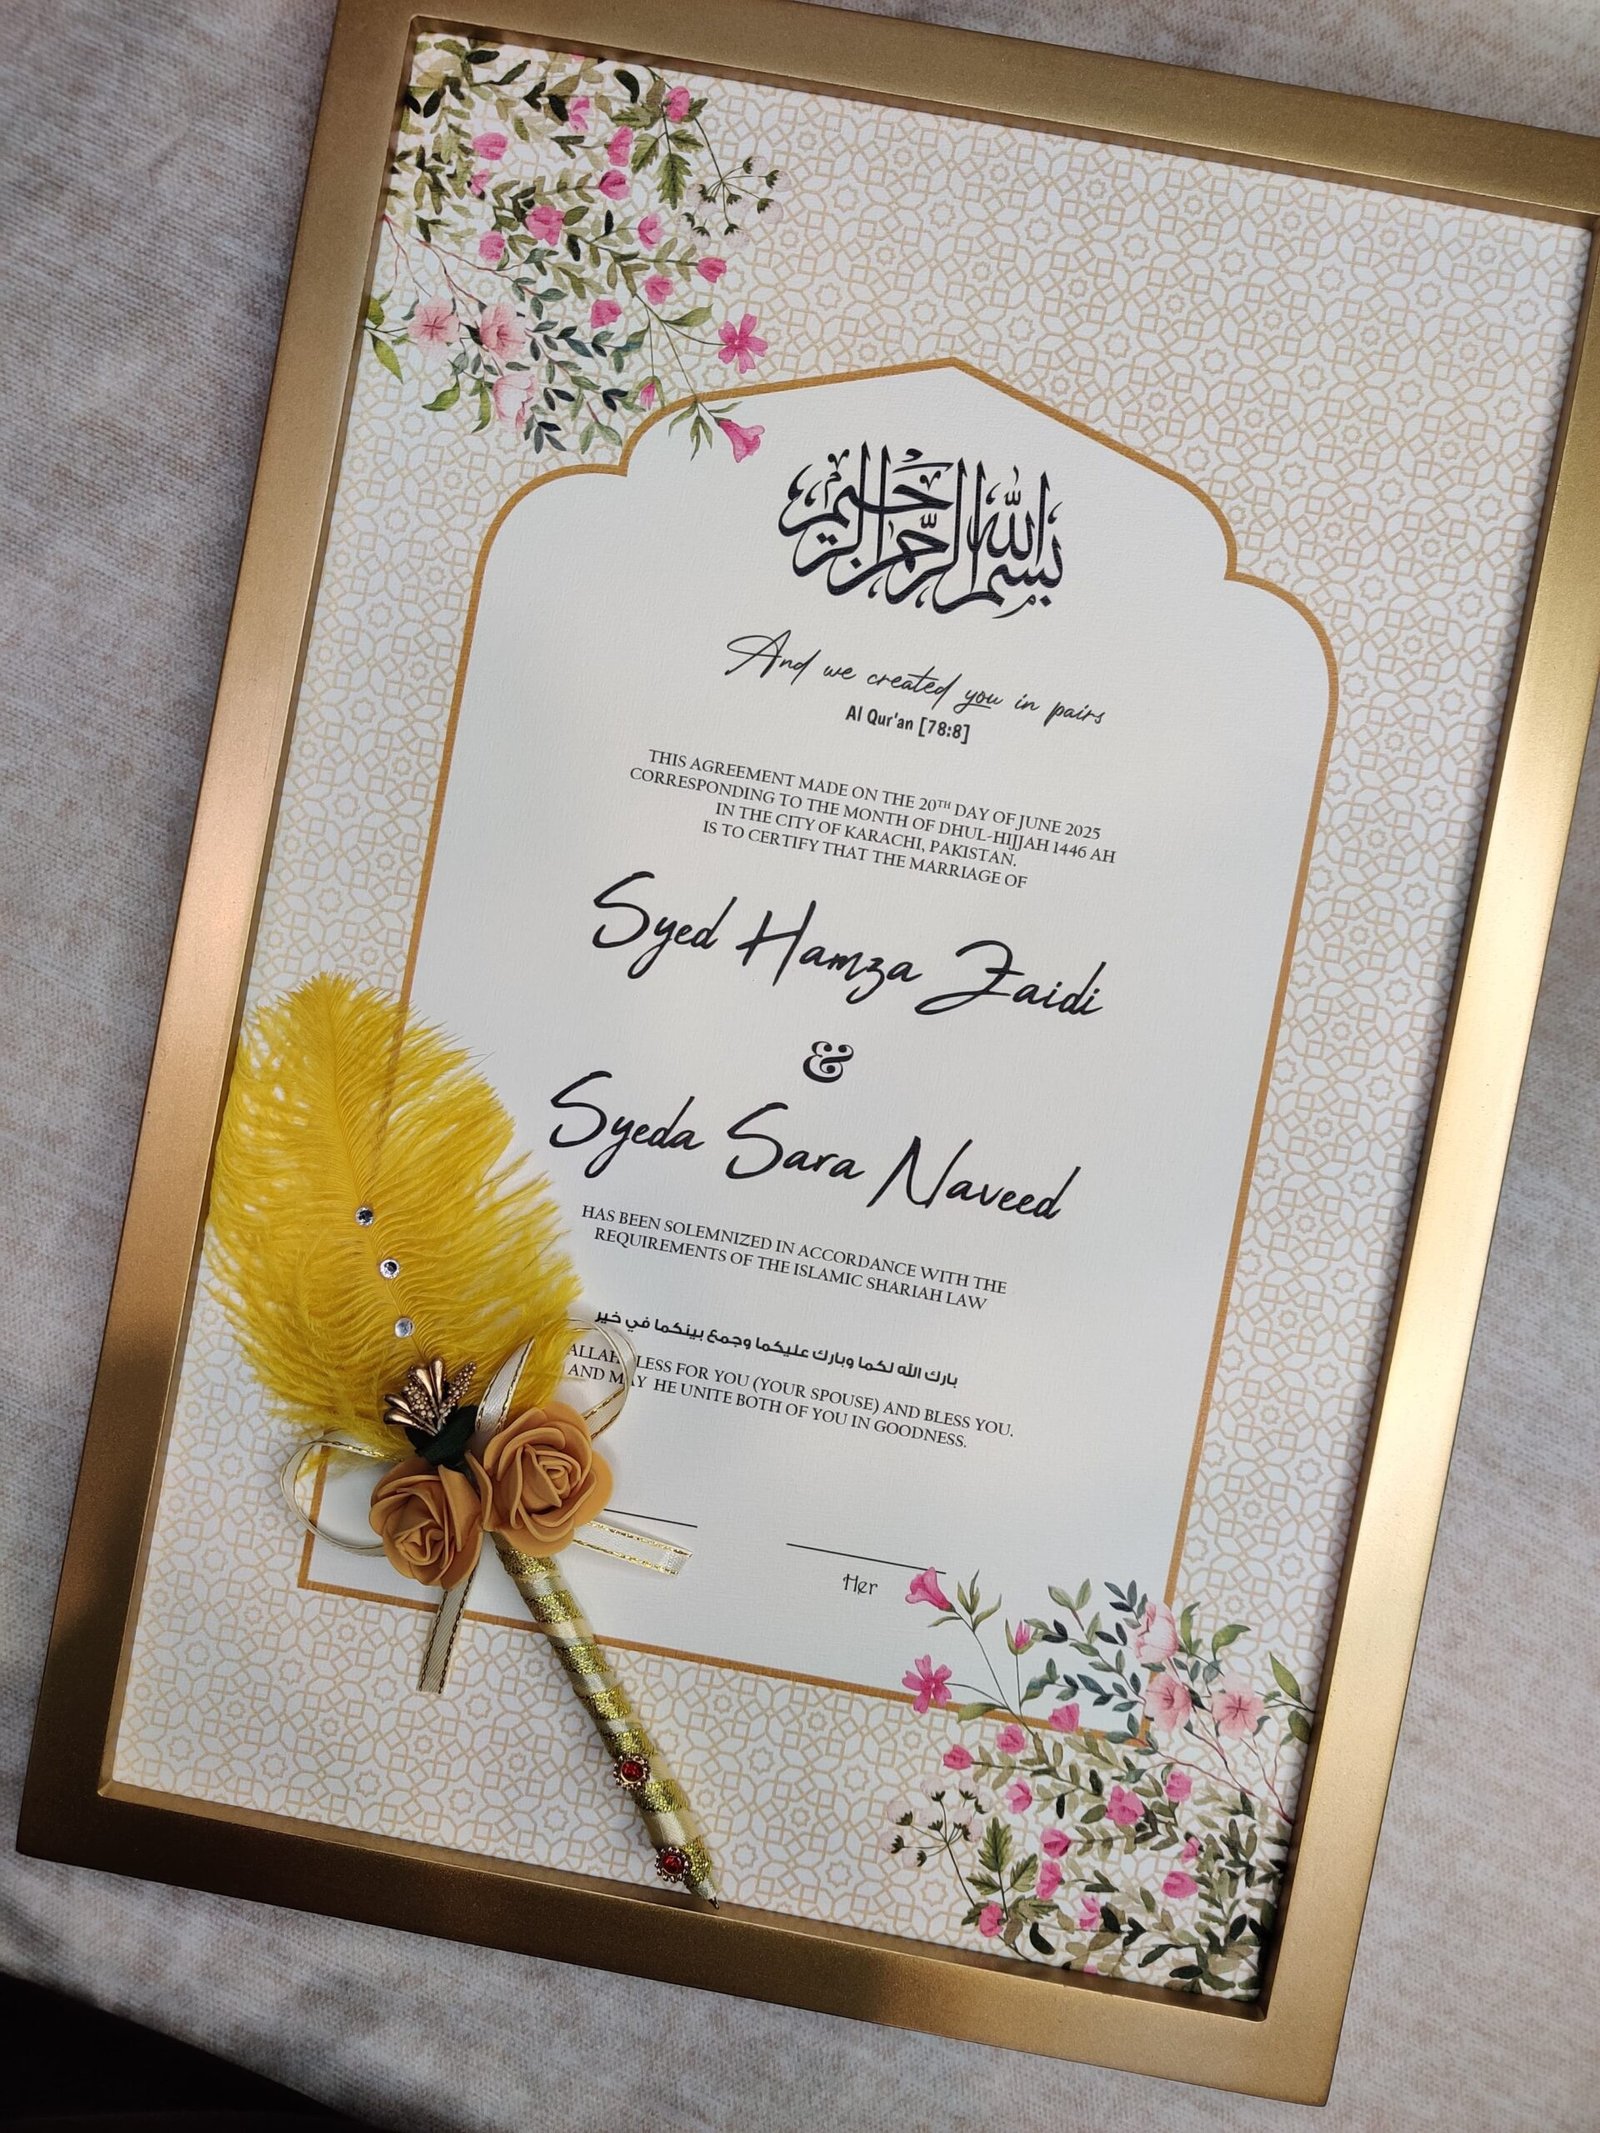 بسم الله الرحمن الرحيم
And we created you in pairs
Al Qur'an [78:8]
THIS AGREEMENT MADE ON THE 20TH DAY OF JUNE 2025
CORRESPONDING TO THE MONTH OF DHUL-HIJJAH 1446 AH
IN THE CITY OF KARACHI, PAKISTAN.
IS TO CERTIFY THAT THE MARRIAGE OF
Syed Hamza Zaidi
&
Syeda Sara Naveed
HAS BEEN SOLEMNIZED IN ACCORDANCE WITH THE
REQUIREMENTS OF THE ISLAMIC SHARIAH LAW
بارك الله لكما وبارك عليكما وجمع بينكما في خير
ALLAH LESS FOR YOU (YOUR SPOUSE) AND BLESS YOU.
AND MAY HE UNITE BOTH OF YOU IN GOODNESS.
Her